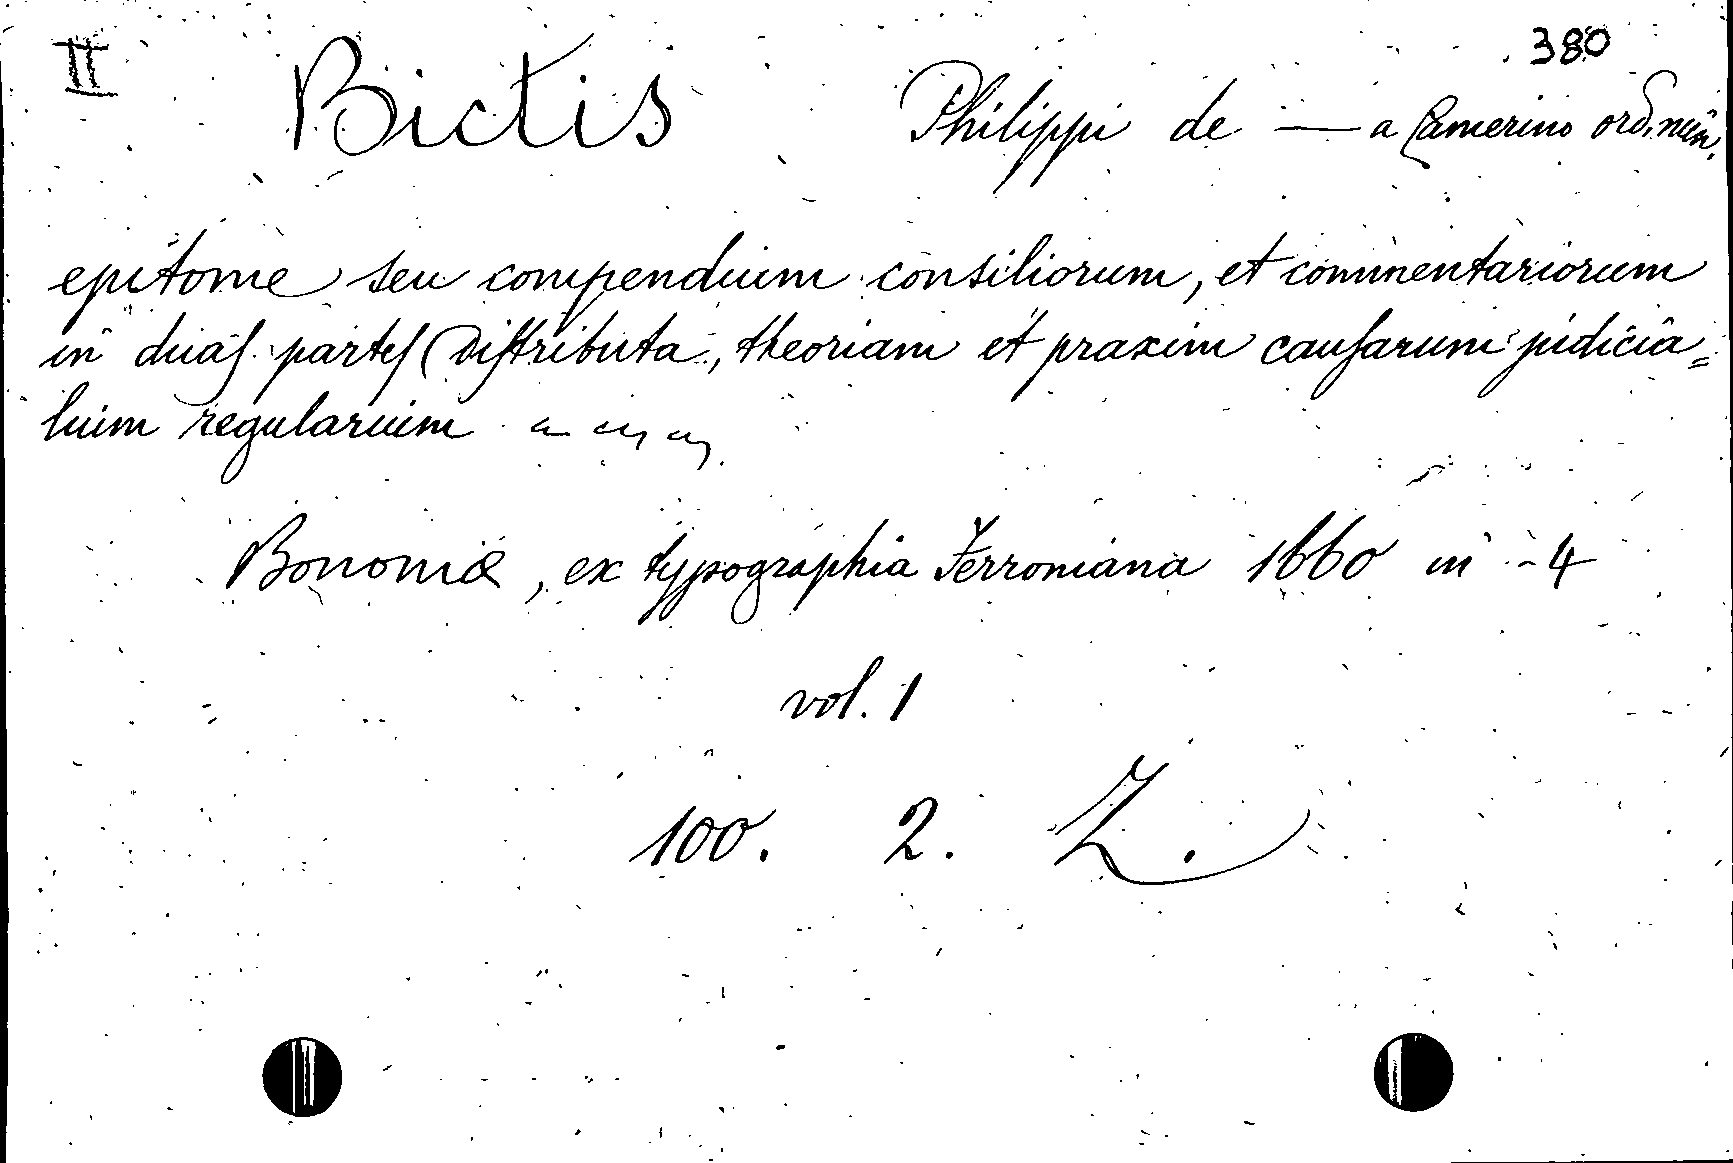 II 380
Bictis Philippi de — a Camerino ord. min.
epitome seu compendium consiliorum, et commentariorum
in duaſ parteſ diſtributa, theoriam et praxim cauſarum judicia=
lium regularium
Bononiæ, ex typographia Ferroniana 1660 in -4
vol. 1
100. 2. Z.